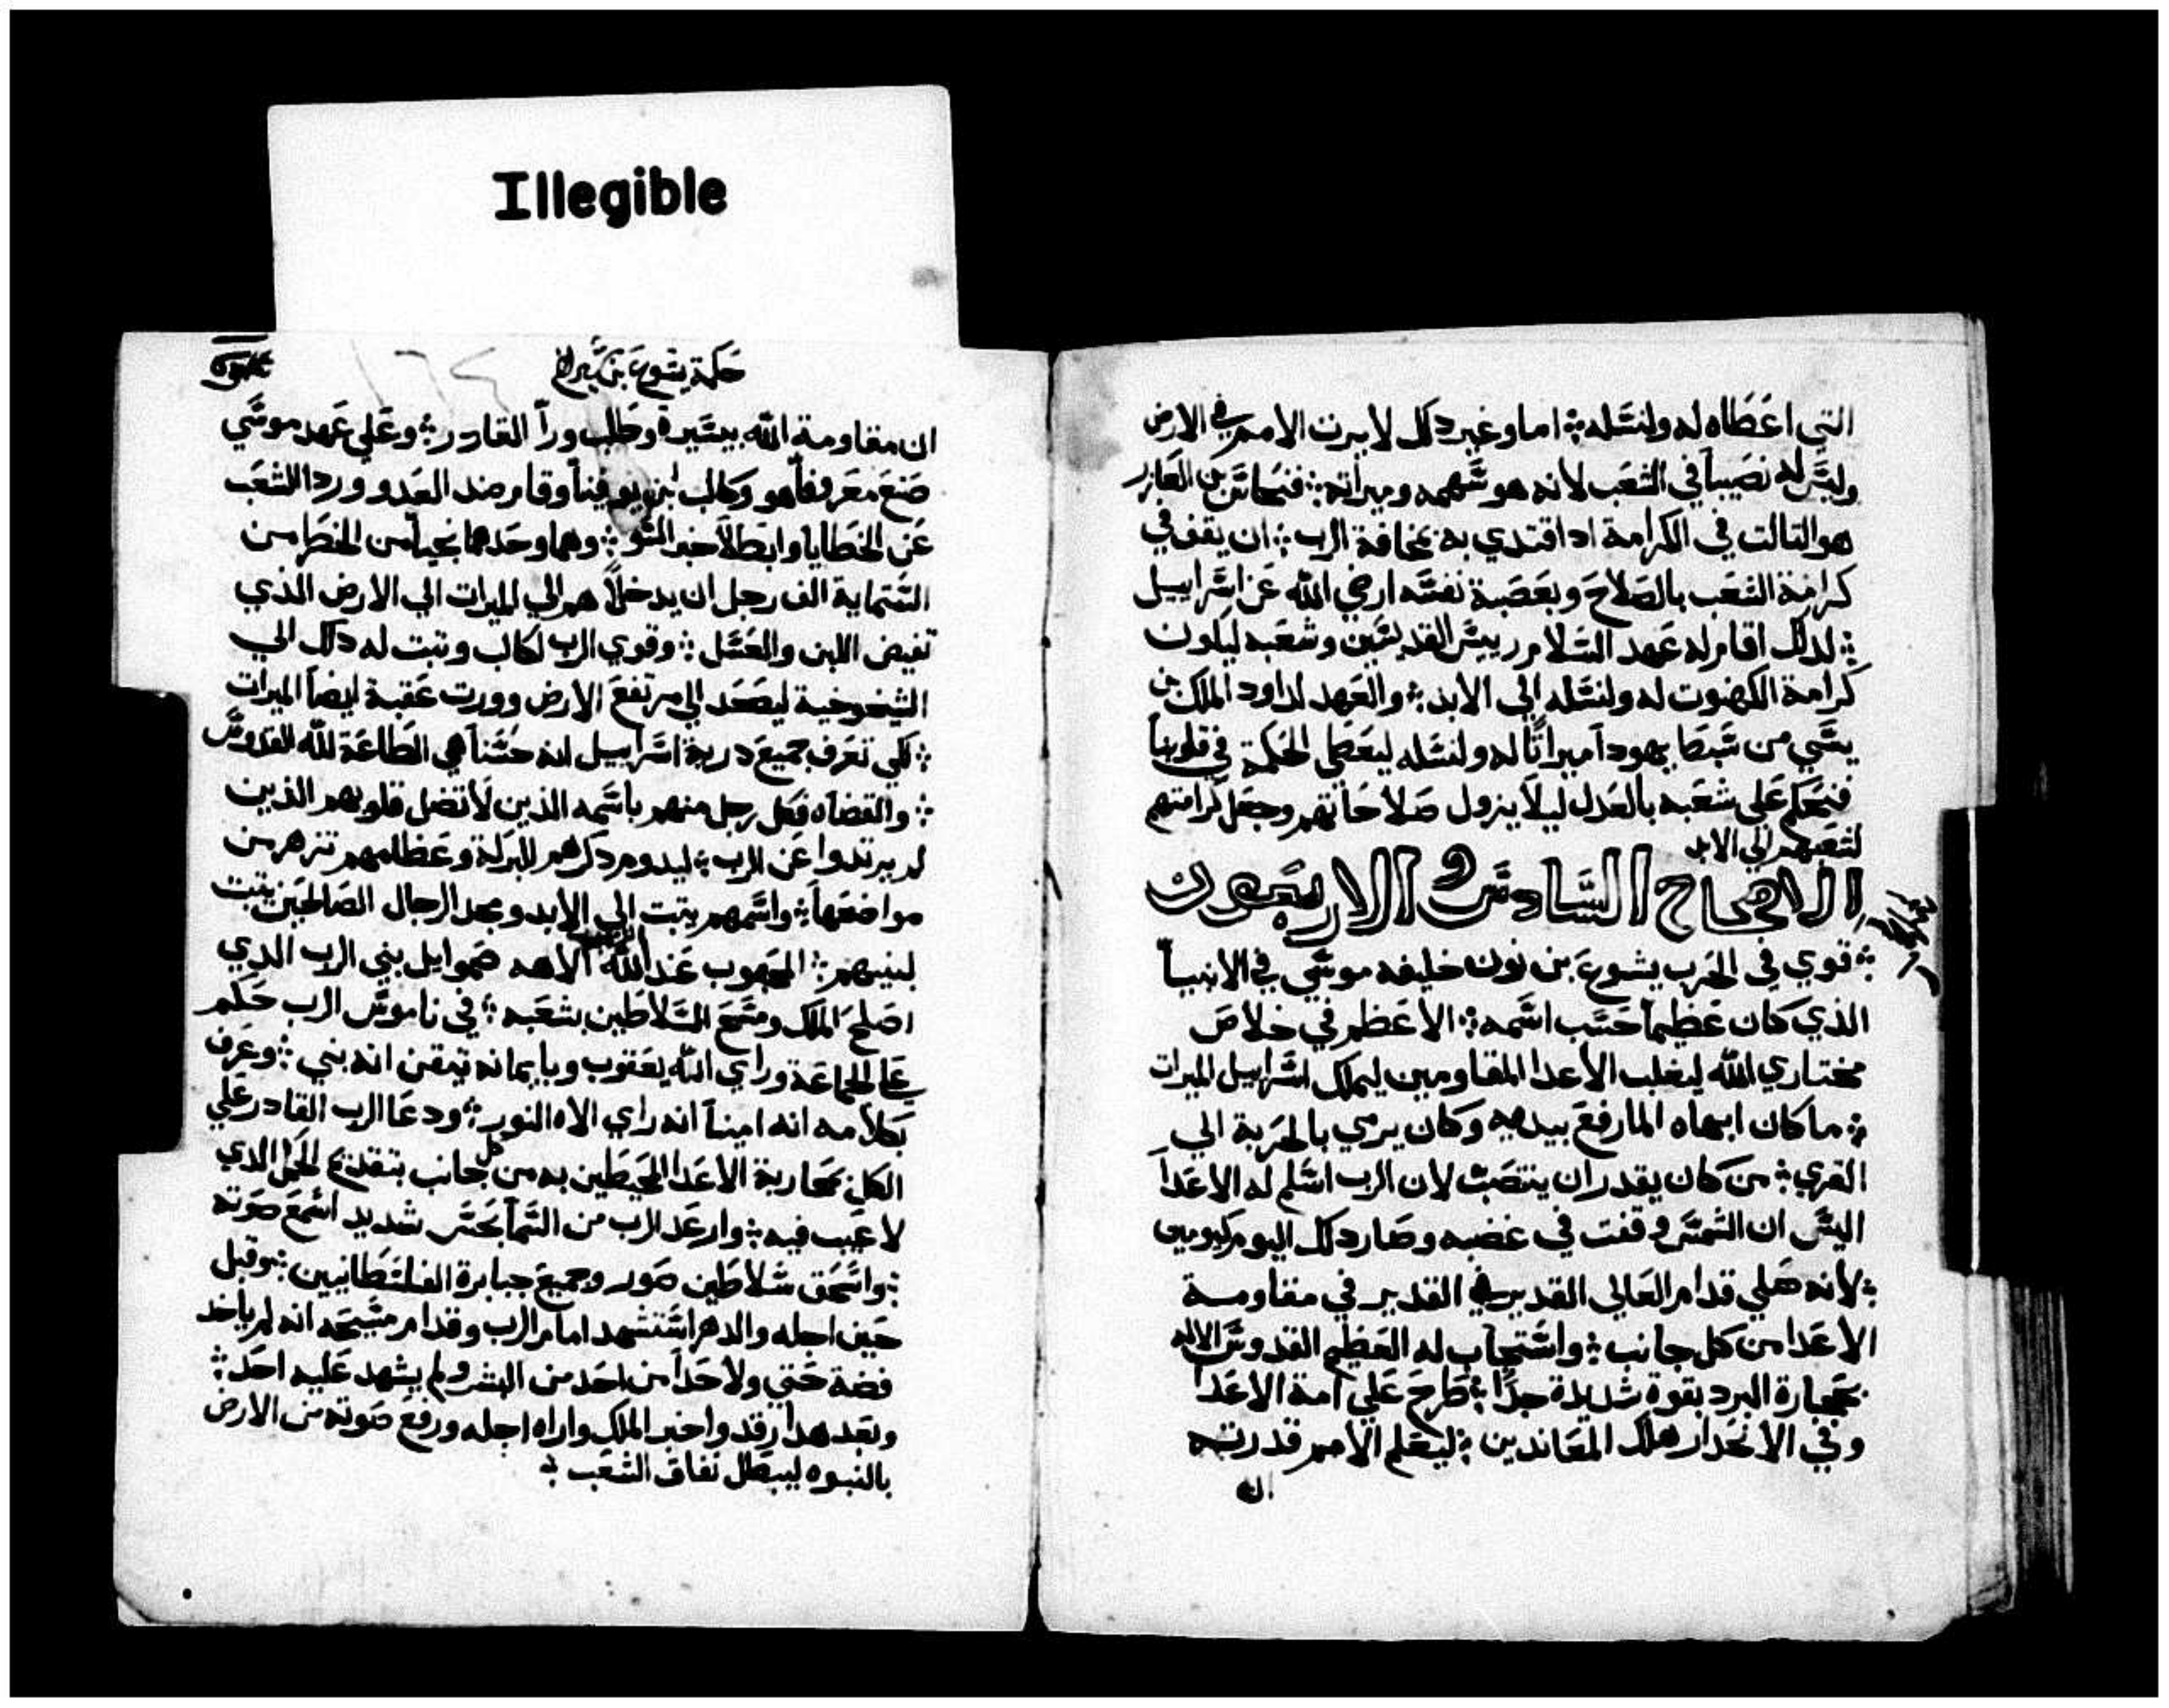 Illegible
التي اعَطَاه له ولنسَله ܀ اما وغير دلك لا يرت الامم في الارض
وليسَ له نصَيباً في الشعَب لانه هو سَهمه وميراته ܀ فنحَاسَ بن العَازر
هو التالت في الكرامة ادا اقتدي به بمخافة الرب ܀ ان يقف في
كرامة الشعَب بالصَلاحَ وبعَصَبة نفسَه ارضي الله عَن اسَراييل
܀ لدلك اقام له عَهد السَلام رييسَ القديسَين وشعَبه ليكون
كرامة الكهنوت له ولنسَله الي الابد ܀ والعَهد لداود الملك بن
يسَي من سَبطَ يهودا ميراتاً له ولنسَله ليعَطي الحَكمة في قلوبنا
فنحَكم عَلي شعَبه بالعَدل ليلا يزول صَلاحَاتهم وجعَل كرامتهم
لشعَبهم الي الابد
الاصحاح السَادسَ و الاربعَون
܀ قوي في الحَرب يشوعَ بن نون خليفه موسَي في الانبياً
الذي كان عَظيماً حَسَب اسَمه ܀ الاعَظم في خلاصَ
مختاري الله ليغلب الاعَدا المقاومين ليملك اسَراييل الميرات
܀ ما كان ابهاه لما رفعَ بيديه وكان يرمي بالحَربة الي
القري ܀ من كان يقدر ان ينتصَب لان الرب اسَلم له الاعَداً
اليسَ ان الشمسَ وقفت في غضبه وصَار دلك اليوم كيومين
܀ لانه صَلي قدام العَالي القدير في القدير في مقاومة
الاعَدا من كل جانب ܀ واسَتجاب له العَظيم القدوسَ الاله
بحَجارة البرد بقوة شديدة جداً ܀ طَرحَ عَلي امة الاعَداً
وفي الانحَدار هلك المعَاندين ܀ ليعَلم الامم قدرته
ان
حَكمة يشوعَ بن سَيراخ
١٦٤
ان مقاومة الله بيسَيرة وطَلب وراً القادر ܀ وعَلي عَهد موسَي
صَنعَ معَروفاً هو وكالب ابن يوفيناً وقام ضد العَدو وردا الشعَب
عَن الخطَايا وابطَلا جفر السَو ܀ وهما وحَدهما نجياً من الخطَر من
السَتماية الف رجل ان يدخلاهم الي الميرات الي الارض الذي
تفيض اللبن والعَسَل ܀ وقوي الرب لكالب وتبت له دلك الي
الشيخوخية ليصَعَد الي مرتفعَ الارض وورت عَقبة ايضاً الميرات
܀ لكي تعَرف جميعَ درية اسَراييل انه حَسَناً هي الطَاعَة لله القدوسَ
܀ والقضاه فكل رجل منهم باسَمه الذين لا تضل قلوبهم الذين
لم يرتدوا عَن الرب ܀ ليدوم دكرهم للبركة وعَظامهم تزهر من
مواضعَها ܀ واسَمهم يتبت الي الابد ومجد الرجال الصَالحَين يتبت
لبنيهم ܀ المحَبوب عَند الله الاهه صَموايل بني الرب الدي
اصَلحَ الملك ومسَحَ السَلاطَين بشعَبه ܀ في ناموسَ الرب حَكم
عَلي الجماعَة وراي الله يعَقوب وبايمانه تيقن انه بني ܀ وعَرف
بكلامه انه اميناً انه راي الاه النور ܀ ودعَا الرب القادر عَلي
الكل بمحَاربة الاعَدا المحَيطَين به من كل جانب بتقدمة الحَمل الدي
لا عَيب فيه ܀ وارعَد الرب من السَماً بحَسَ شديد اسَمعَ صَوته
܀ واسَحَق سَلاطَين صَور وجميعَ جبابرة الفلسَطَانيين ܀ وقبل
حَين اجله والدهر اسَتشهد امام الرب وقدام مسَيحَه انه لم ياخد
فضة حَتي ولا حَداً من احَد من البشر ولم يشهد عَليه احَد ܀
وبعَد هدا رقد واخبر الملك واراه اجله ورفعَ صَوته من الارض
بالنبوه ليبطَل نفاق الشعَب ܀